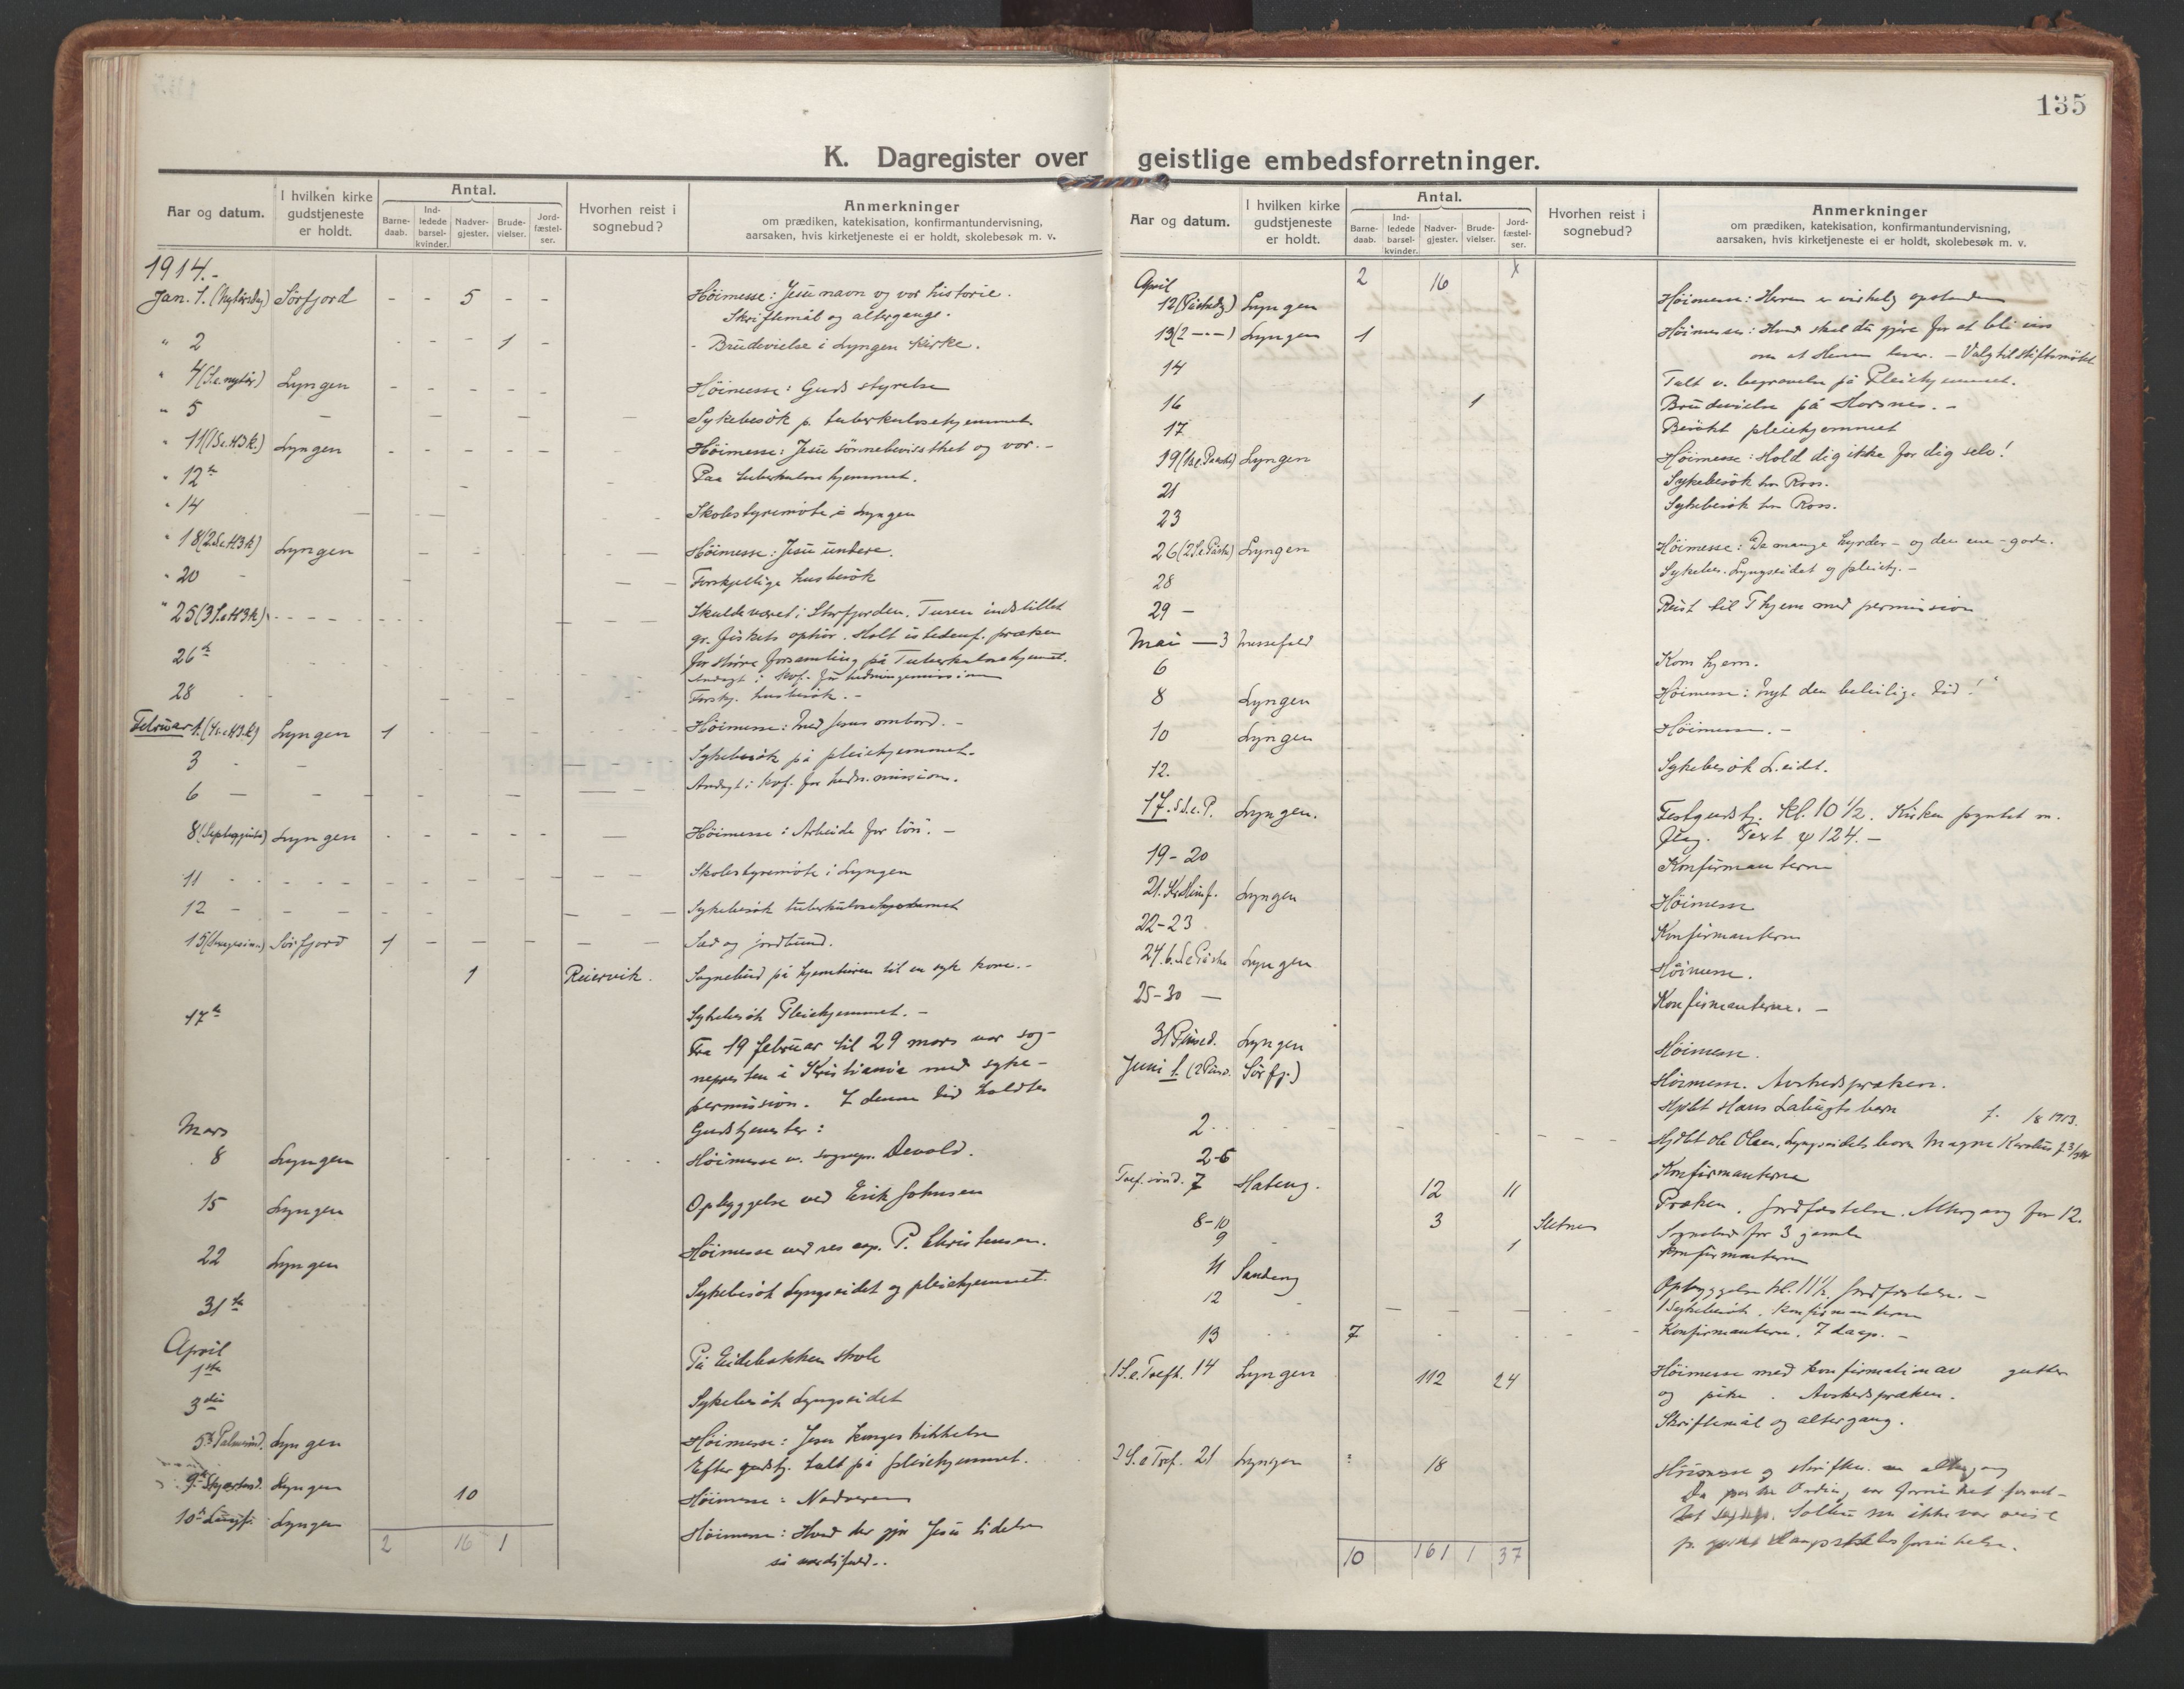 135
K. Dagregister over geistlige embedsforretninger.
Aar og datum. I hvilken kirke gudstjeneste er holdt. Antal. Barnedaab. Indledede barselkvinder. Nadvergjester. Brudevielser. Jordfæstelser. Hvorhen reist i sognebud? Anmerkninger om prædiken, katekisation, konfirmantundervisning, aarsaken, hvis kirketjeneste ei er holdt, skolebesøk m. v.
1914.-
Jan. 1. (Nytårsdag) Sörfjord - - 5 - - Höimesse: Jesu navn og vor historie.
Skriftemål og altergang.
" 2 - - - 1 - - Brudevielse i Lyngen kirke.
" 4 (S.e. nytår) Lyngen - - - - - Höimesse: Guds styrelse
" 5 Sykebesök p. tuberkulosehjemmet
" 11 (1S.e.H3k.) Lyngen - - - - - Höimesse: Jesu sönnebevissthet og vor. -
" 12te Paa tuberkulosehjemmet.
" 14 Skolestyremöte i Lyngen
" 18 (2S.e.H3k) Lyngen Höimesse: Jesu undere.
" 20 Forskjellige husbesök
" 25 (3S.e.H3k) Skulde været i Storfjorden. Turen indstillet
gr. fiskets ophör. Holt istedenf. præken
for större forsamling på Tuberkulosehjemmet.
26te Andagt i kvf. for hedningemissionen
28 Forskj. husbesök. -
Februar 1. (4S.e.H3k) Lyngen 1 - - - - Höimesse: Med Jesus ombord. -
3 Sykebesök på pleiehjemmet.
6 Andagt i kvf. for hedn. missionen.
8 (Septuagesima) Lyngen - - - - - Höimesse: Arbeide for lön. -
11 Skolestyremöte i Lyngen
12 Sykebesök tuberkulosehjemmet
15 (Sexagesima) Sörfjord 1 - - - - Sæd og jordbund.
1 Reiervik. Sognebud på hjemturen til en syk kone. -
17te Sykebesök Pleiehjemmet. -
Fra 19 februar til 29 mars var sog-
nepresten i Kristiania med syke-
permission. I denne tid holdtes
Mars Gudstjenester:
8 Lyngen Höimesse v. sognepr. Devold.
15 Lyngen Opbyggelse ved Erik Johnsen
22 Lyngen Höimesse ved res. cap. P. Christensen.
31te Sykebesök Lyngseidet og pleiehjemmet.
April
1ste På Eidebakken skole
3die Sykebesök Lyngseidet
5te Palmesönd. Lyngen Höimesse: Jesu kongeskikkelse
Efter gudstj. talt på pleiehjemmet.
9de Skjærtorsd. Lyngen 10 Höimesse: Nadveren
10de Langfr. Lyngen Höimesse: Hvad der gjör Jesu lidelse
så verdifuld..
2 16 1
April 2 16 x
12 (Påskedag) Lyngen Höimesse: Herren er virkelig opstanden
13 (2 - - -) Lyngen 1 Höimesse: Hvad skal du gjöre for at bli viss
om at Herren lever. - Valg til stiftsmötet
14 Talt v. begravelse på Pleiehjemmet.
16 1 Brudevielse på Horsnes. -
17 Besökt pleiehjemmet
19 (1S.e. Påske) Lyngen Höimesse: Hold dig ikke for dig selv!
21 Sykebesök hos Ross.
23 Sykebesök hos Ross.
26 (2S.e. Påske) Lyngen Höimesse: De mange hyrder - og den ene - gode.
28 Sykebes. Lyngseidet og pleiehj. -
29 - Reist til Thjem med permission
Mai - 3 Messefald
6 Kom hjem.
8 Lyngen Höimesse: Nyt den beleilige tid!
10 Lyngen Höimesse. -
12. Sykebesök L.eidet.
17. 5S.e.P. Lyngen. Festgudstj. kl. 10 ½. Kirken pyntet m.
flag. Text ψ 124. -
19-20 Konfirmanterne
21. Kr. Himf. Lyngen Höimesse
22-23 Konfirmanterne
24. 6.S.e. Påske Lyngen Höimesse.
25-30 - Konfirmanterne. -
31 Pinsed. Lyngen Höimesse.
Juni 1. (2 Pinsd. Sörfj.) Höimesse. Avskedspræken.
Hjdöbt Hans barn f. /8 1913.
2. Hjdöbt Ole Olsen, Lyngseidets barn Magne f.
2-6 Konfirmanterne
Tref. sönd. 7 Hateng. 12 11 Præken. Jordfæstelse. Altergang for 12.
8-10 3 Sletnes Sognebud for 3 gamle
9 1 Konfirmanterne
11 Sandeng Opbyggelse kl. 11½. Jordfæstelse. -
12 1 Sykebesök. Konfirmanterne
13 7 Konfirmanterne. 7 daap. -
1S.e.Trefh. 14 Lyngen 112 24 Höimesse med konfirmation av gutter
og piker. Avskedspræken.
Skriftemål og altergang.
2S.e.Tref. 21 Lyngen 18 Höimesse og altergang
ikke var reist
10 161 1 37